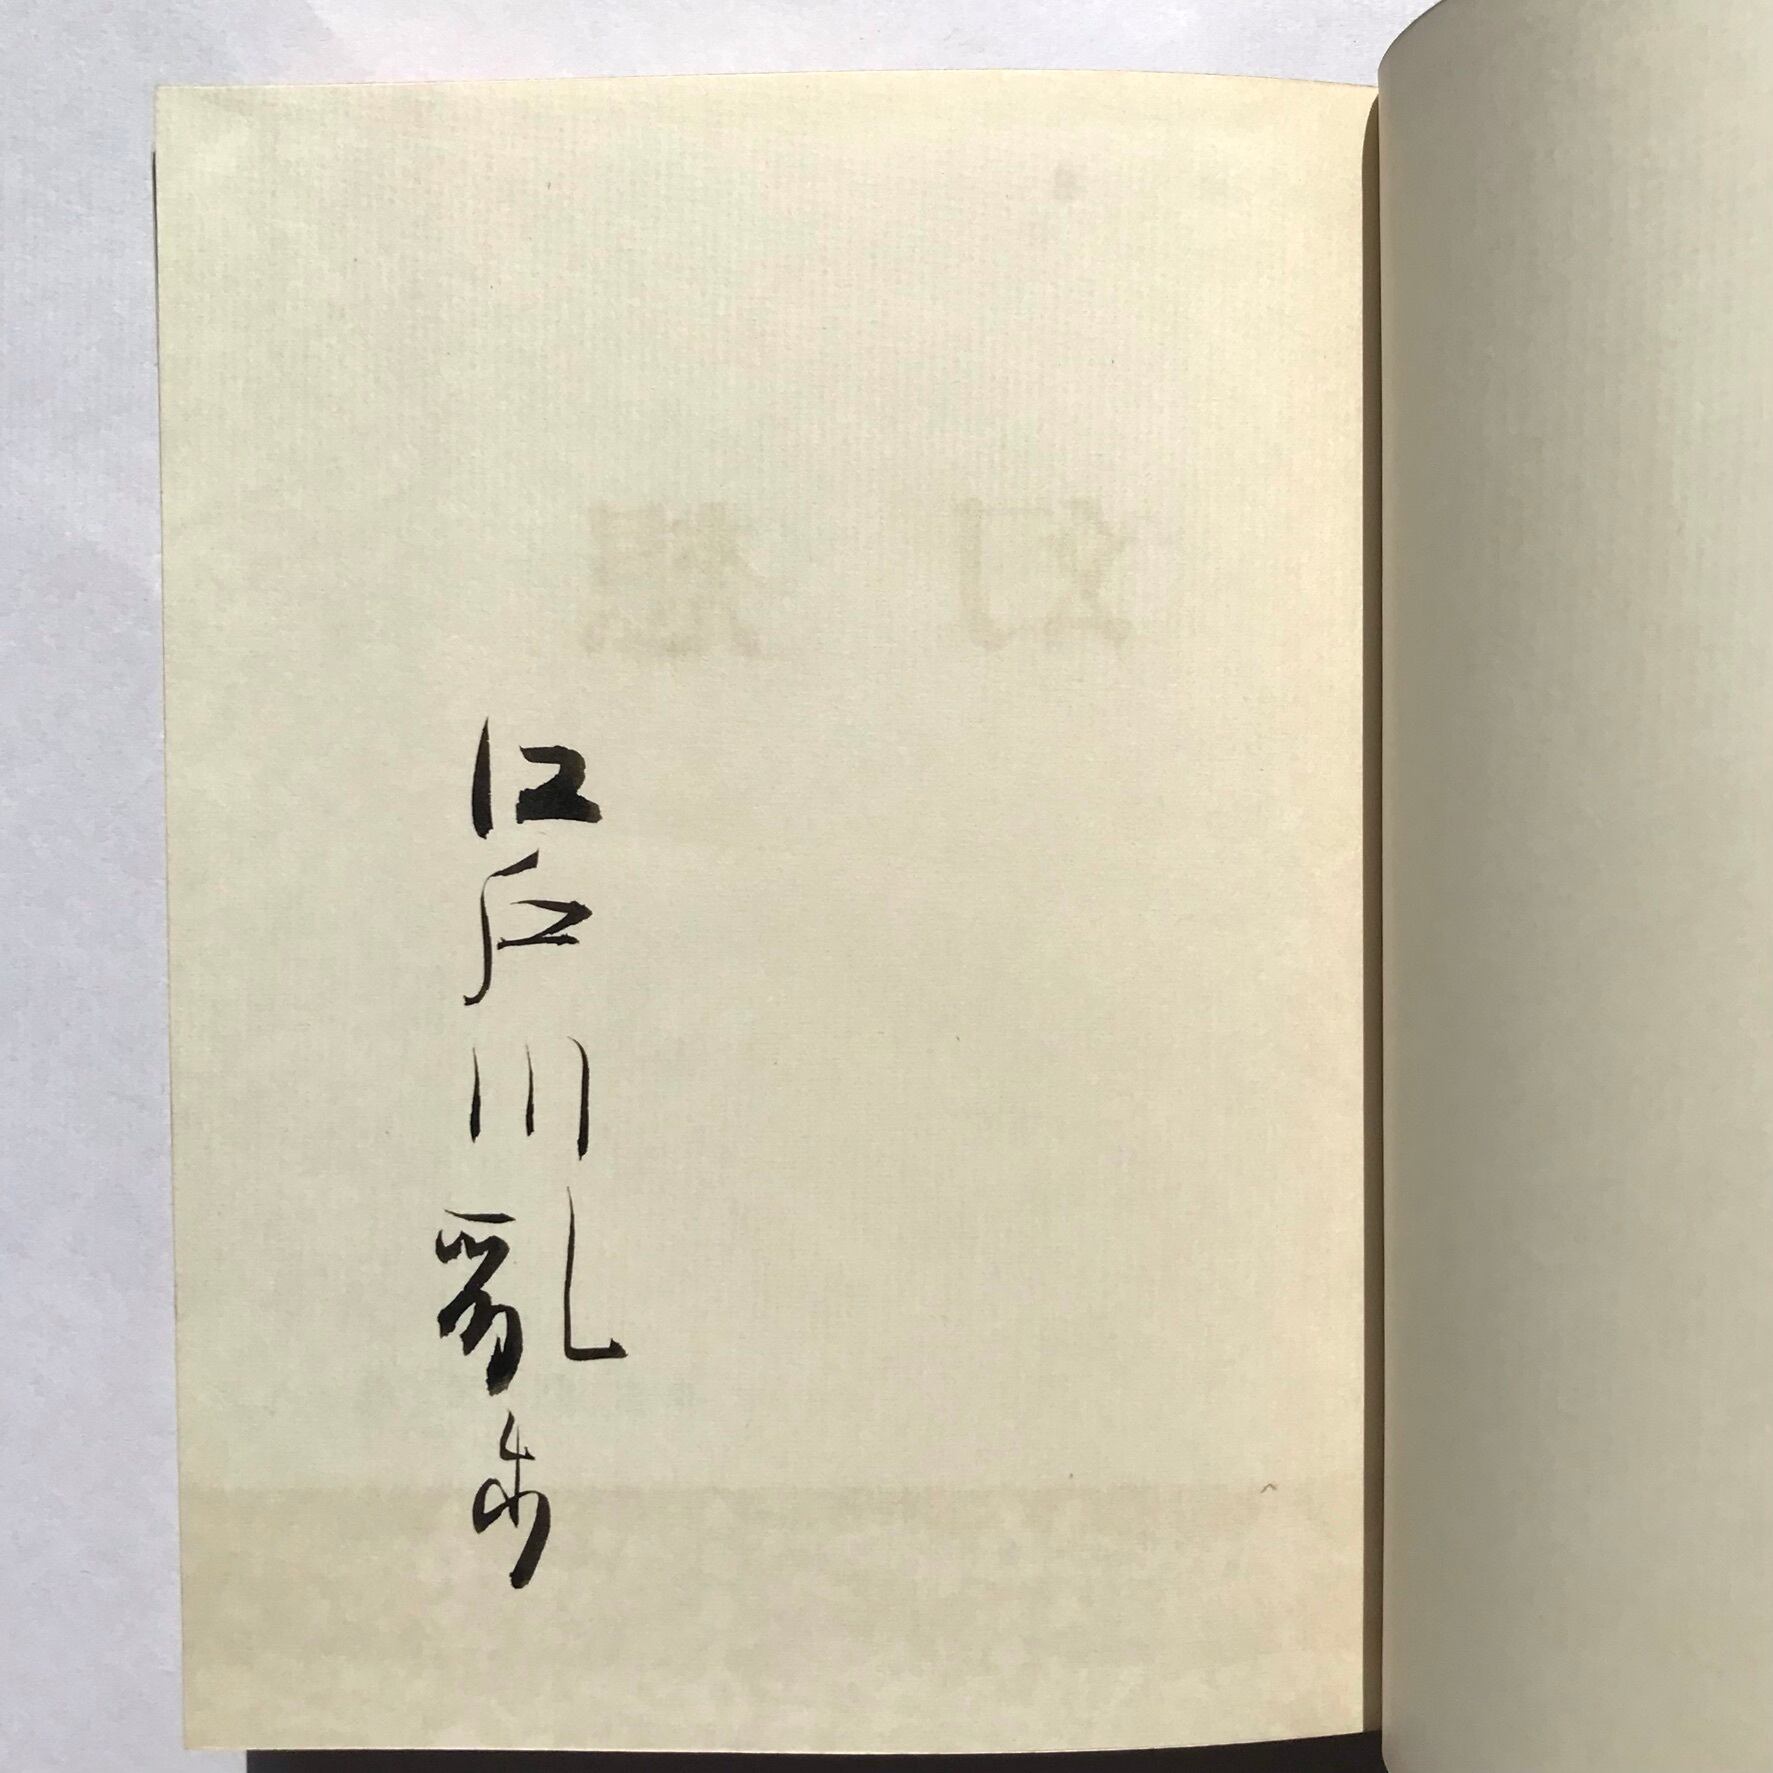 江戸川亂歩